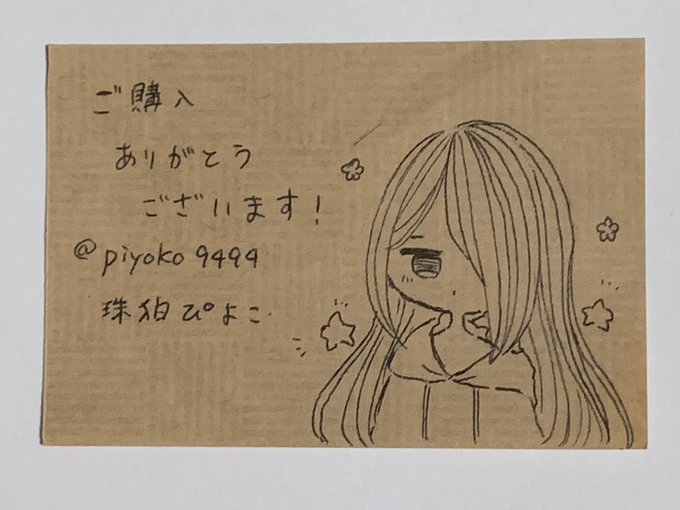 ご購入
ありがとう
ございます!
@piyoko9494
珠狛ぴよこ